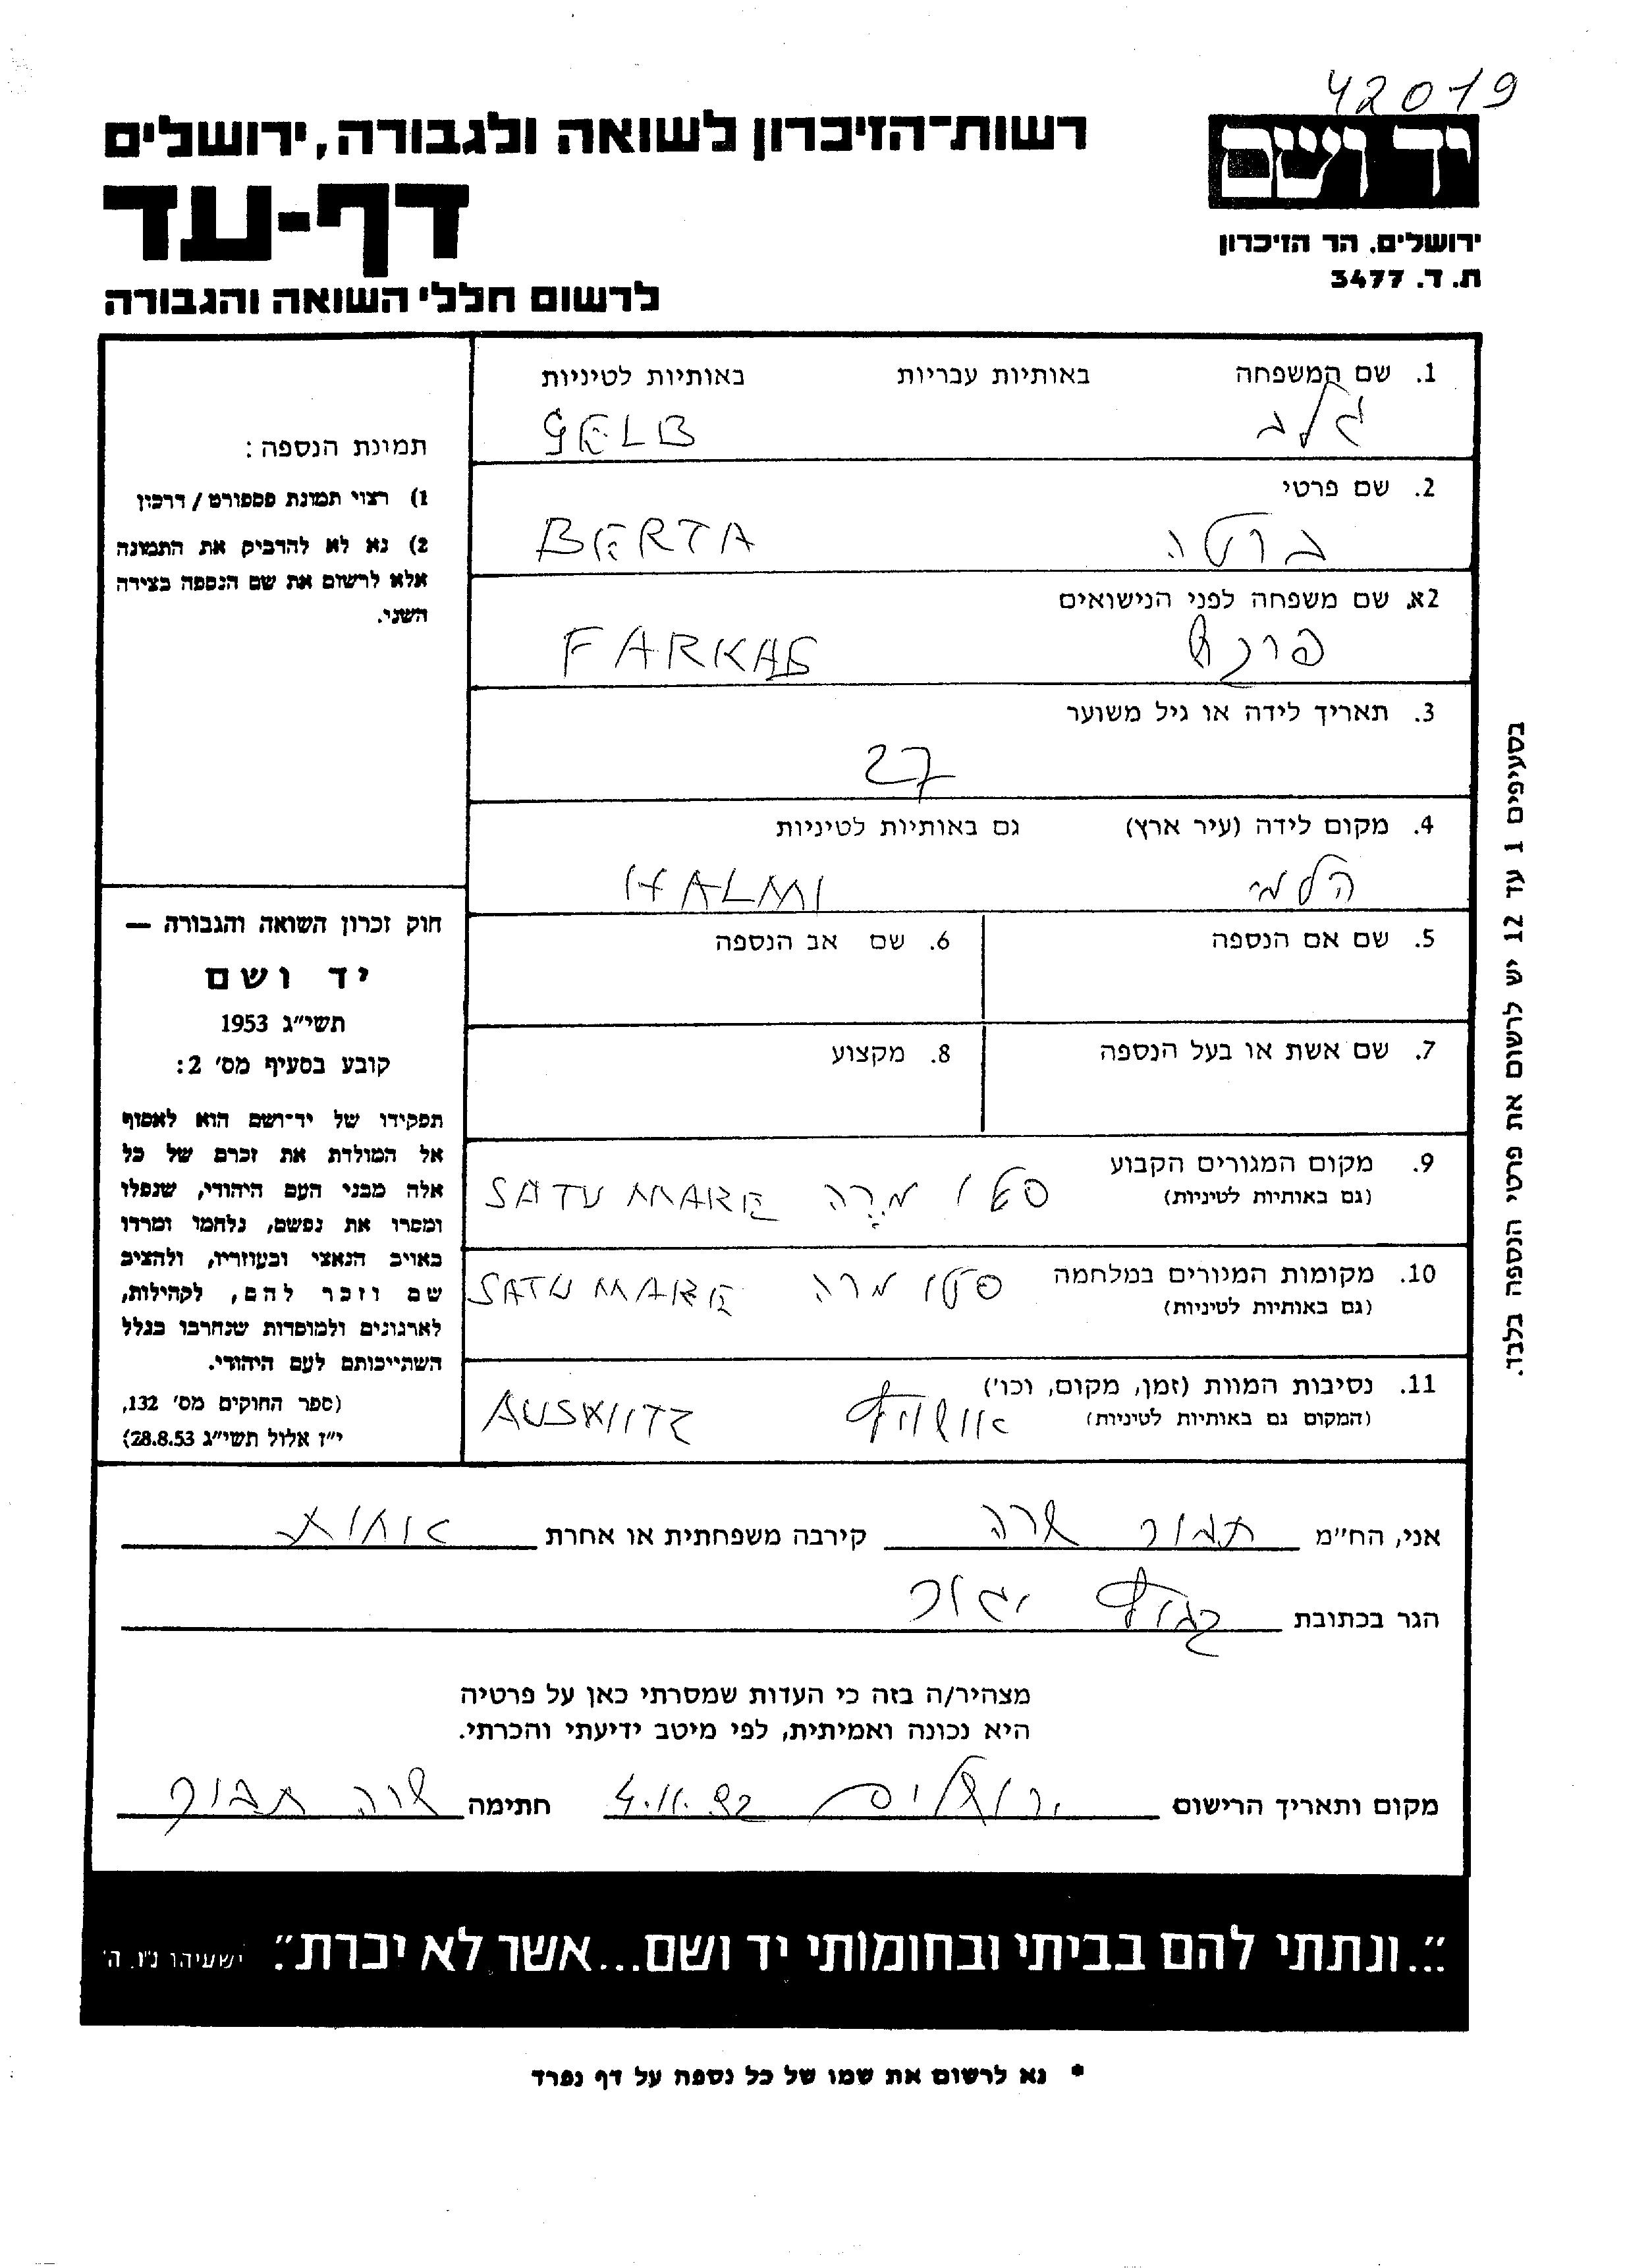 42019
רשות-הזיכרון לשואה ולגבורה, ירושלים
יד ושם
דף-עד
ירושלים, הר הזיכרון
ת. ד. 3477
לרשום חללי השואה והגבורה
1. שם המשפחה באותיות עבריות באותיות לטיניות
גלב GELB
2. שם פרטי
ברטה BERTA
2א. שם משפחה לפני הנישואים
FARKAS
3. תאריך לידה או גיל משוער
27
4. מקום לידה (עיר ארץ) גם באותיות לטיניות
הלמי HALMI
5. שם אם הנספה 6. שם אב הנספה
7. שם אשת או בעל הנספה 8. מקצוע
9. מקום המגורים הקבוע
(גם באותיות לטיניות)
סטו מרה SATU MARE
10. מקומות המגורים במלחמה
(גם באותיות לטיניות)
סטו מרה SATU MARE
11. נסיבות המוות (זמן, מקום, וכו')
(המקום גם באותיות לטיניות)
אושויץ AUSWITZ
תמונת הנספה:
1) רצוי תמונת פספורט / דרכון
2) נא לא להדביק את התמונה
אלא לרשום את שם הנספה בצידה
השני.
חוק זכרון השואה והגבורה —
יד ושם
תשי"ג 1953
קובע בסעיף מס' 2:
תפקידו של יד-ושם הוא לאסוף
אל המולדת את זכרם של כל
אלה מבני העם היהודי, שנפלו
ומסרו את נפשם, נלחמו ומרדו
באויב הנאצי ובעוזריו, ולהציב
שם וזכר להם, לקהילות,
לארגונים ולמוסדות שנחרבו בגלל
השתייכותם לעם היהודי.
(ספר החוקים מס' 132,
י"ז אלול תשי"ג 28.8.53)
בסעיפים 1 עד 12 יש לרשום את פרטי הנספה בלבד.
אני, הח"מ תבור שרה קירבה משפחתית או אחרת אחות
הגר בכתובת קבוץ יגור
מצהיר/ה בזה כי העדות שמסרתי כאן על פרטיה
היא נכונה ואמיתית, לפי מיטב ידיעתי והכרתי.
מקום ותאריך הרישום ירושלים 4.11.92 חתימה שרה תבור
"...ונתתי להם בביתי ובחומותי יד ושם...אשר לא יכרת". ישעיהו נ"ו, ה'
* נא לרשום את שמו של כל נספה על דף נפרד